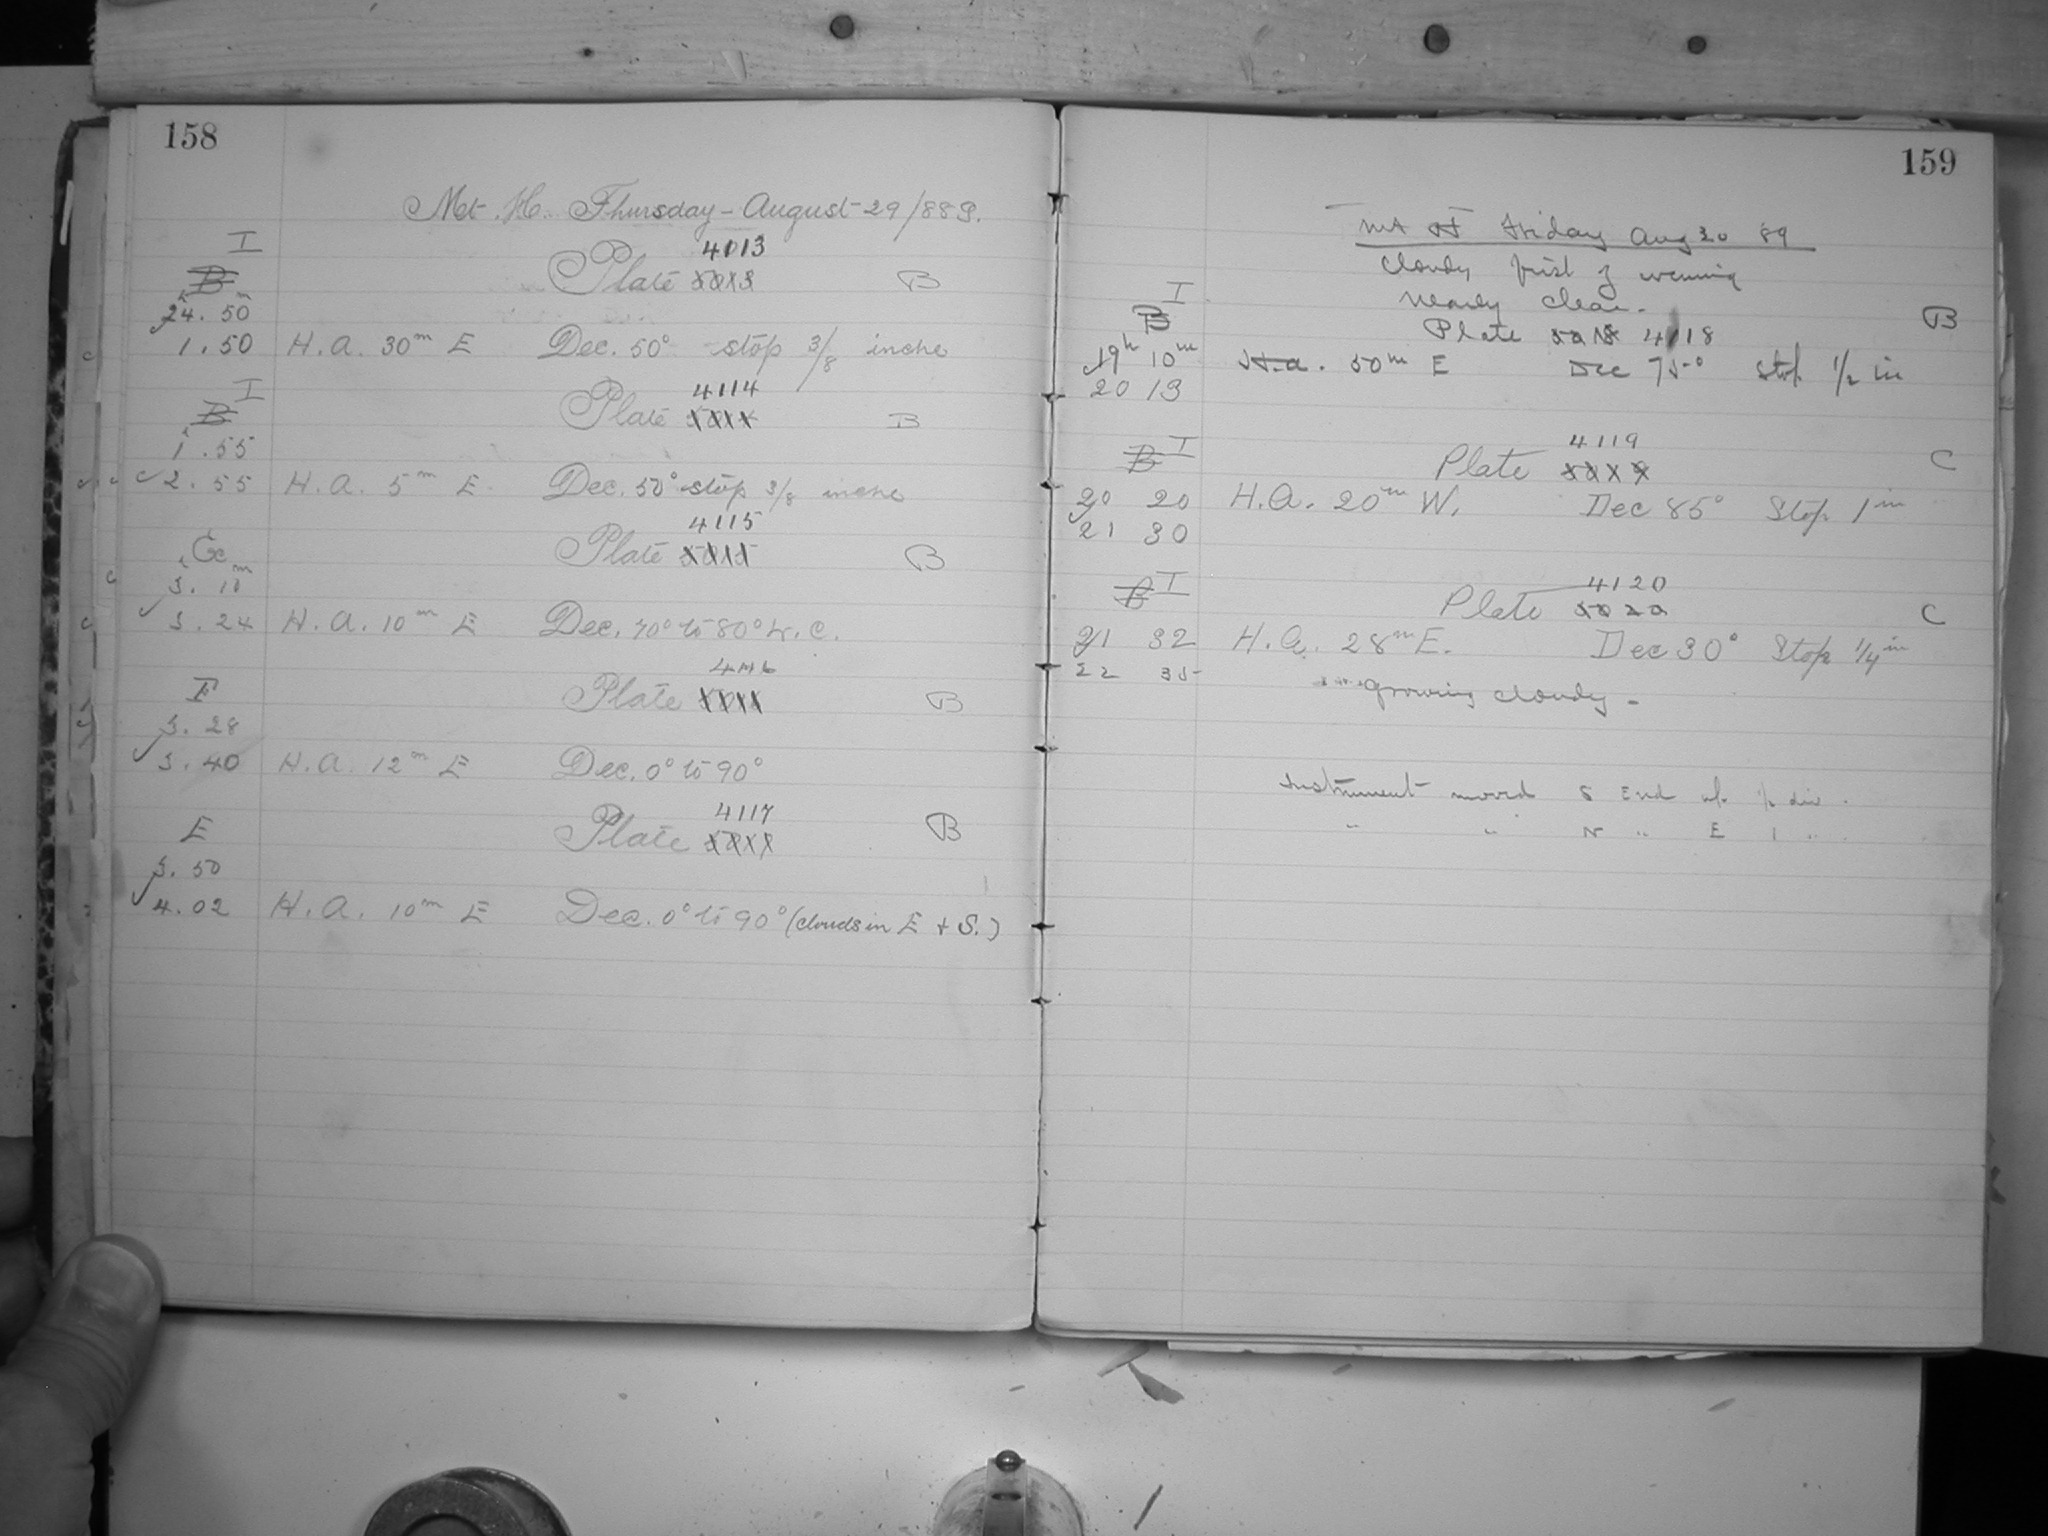 158
Mt. H. Thursday - August 29/889.
I
4013
B Plate B
24.50
1.50 H.A. 30m E Dec. 50° stop 3/8 inche
I
4114
B Plate B
1.55
2.55 H.A. 5m E. Dec. 50° stop 3/8 inche
4115
Plate B
3.10
3.24 H.A. 10m E Dec. 70° to 80°
Plate B
F
3.28
3.40 H.A. 12m E Dec. 0° to 90°
4117
E Plate B
3.50
4.02 H.A. 10m E Dec. 0° to 90° (clouds in E + S.)
159
Mt H Friday Aug 30 89
Cloudy first of evening
nearly clear.
I
B Plate 4118 B
19h 10m H.a. 50m E Dec 75° Stop 1/2 in
20 13
4119
B I Plate C
20 20 H.A. 20m W. Dec 85° Stop 1 in
21 30
4120
B I Plate C
21 32 H.A. 28m E. Dec 30° Stop 1/4 in
22 35
growing cloudy -
Instrument moved S End 1/2 div.
" " N " E 1 "